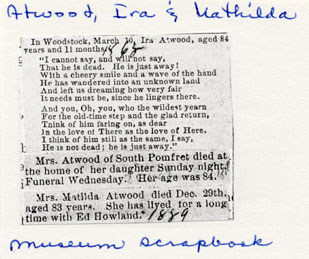 Atwood, Ira & Mathilda
In Woodstock, March 10, Ira Atwood, aged 84
years and 11 months 1862
"I cannot say, and will not say,
That he is dead. He is just away!
With a cheery smile and a wave of the hand
He has wandered into an unknown land
And left us dreaming how very fair
It needs must be, since he lingers there.
And you, Oh, you, who the wildest yearn
For the old-time step and the glad return,
Think of him faring on, as dear
In the love of There as the love of Here.
I think of him still as the same, I say,
He is not dead; he is just away."
Mrs. Atwood of South Pomfret died at
the home of her daughter Sunday night.
Funeral Wednesday. Her age was 84.
Mrs. Matilda Atwood died Dec. 29th,
aged 83 years. She has lived for a long
time with Ed Howland. 1889
Museum Scrapbook